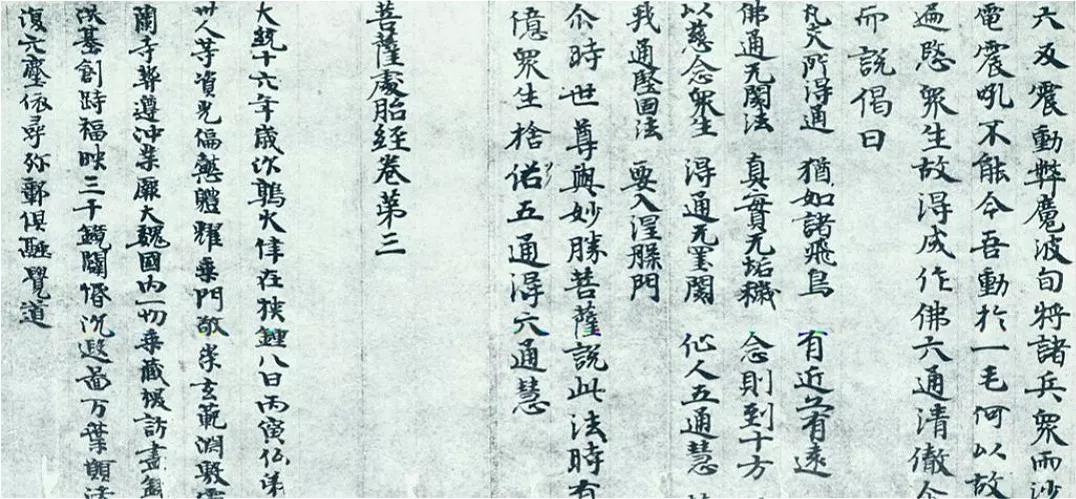 六反震動弊魔波旬將諸兵眾而沙
電震吼不能令吾動於一毛何以故
遍愍眾生故得成作佛六通清徹今
而說偈曰
凡夫所得通 猶如諸飛鳥 有近亦有遠
佛通无閡法 真實无垢穢 念則到十方
以慈念眾生 得通无罣閡 仙人五通慧
我通堅固法 要入涅槃門
尒時世尊與妙勝菩薩說此法時有
億眾生捨俗五通得六通慧
菩薩處胎經卷第三
大統十六年歲次鶉火律在挾鍾八日丙寅仏弟
卅人等資光偏 體耀乘門敬 玄範淵
蘭寺 遵沖業 大魏國內一切乘藏 訪盡
洪基創 福 三千 閣 沉 万葉
復六 依尋弥 俱融覺道